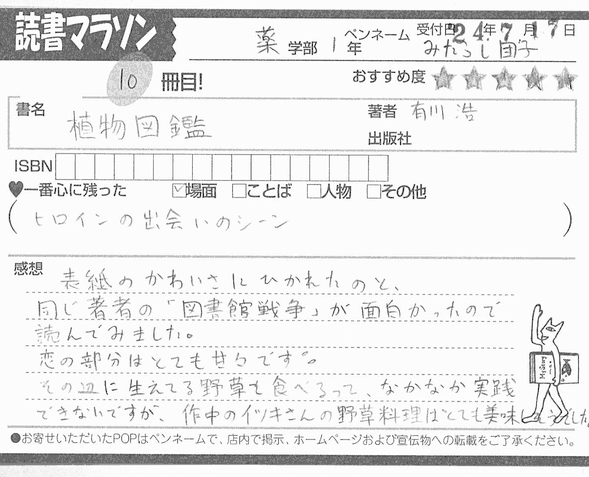 読書マラソン
薬 学部 1 年 ペンネーム みたらし団子 受付日 24年 7月17日
10 冊目! おすすめ度 ★★★★★
書名 植物図鑑 著者 有川 浩
出版社
ISBN
♥一番心に残った ☑場面 □ことば □人物 □その他
(ヒロインの出会いのシーン)
感想 表紙のかわいさにひかれたのと、
同じ著者の「図書館戦争」が面白かったので
読んでみました。
恋の部分はとても甘々です。
その辺に生えてる野草を食べるって、なかなか実践
できないですが、作中のイツキさんの野草料理はとても美味しそうでした。
●お寄せいただいたPOPはペンネームで、店内で掲示、ホームページおよび宣伝物への転載をご了承ください。